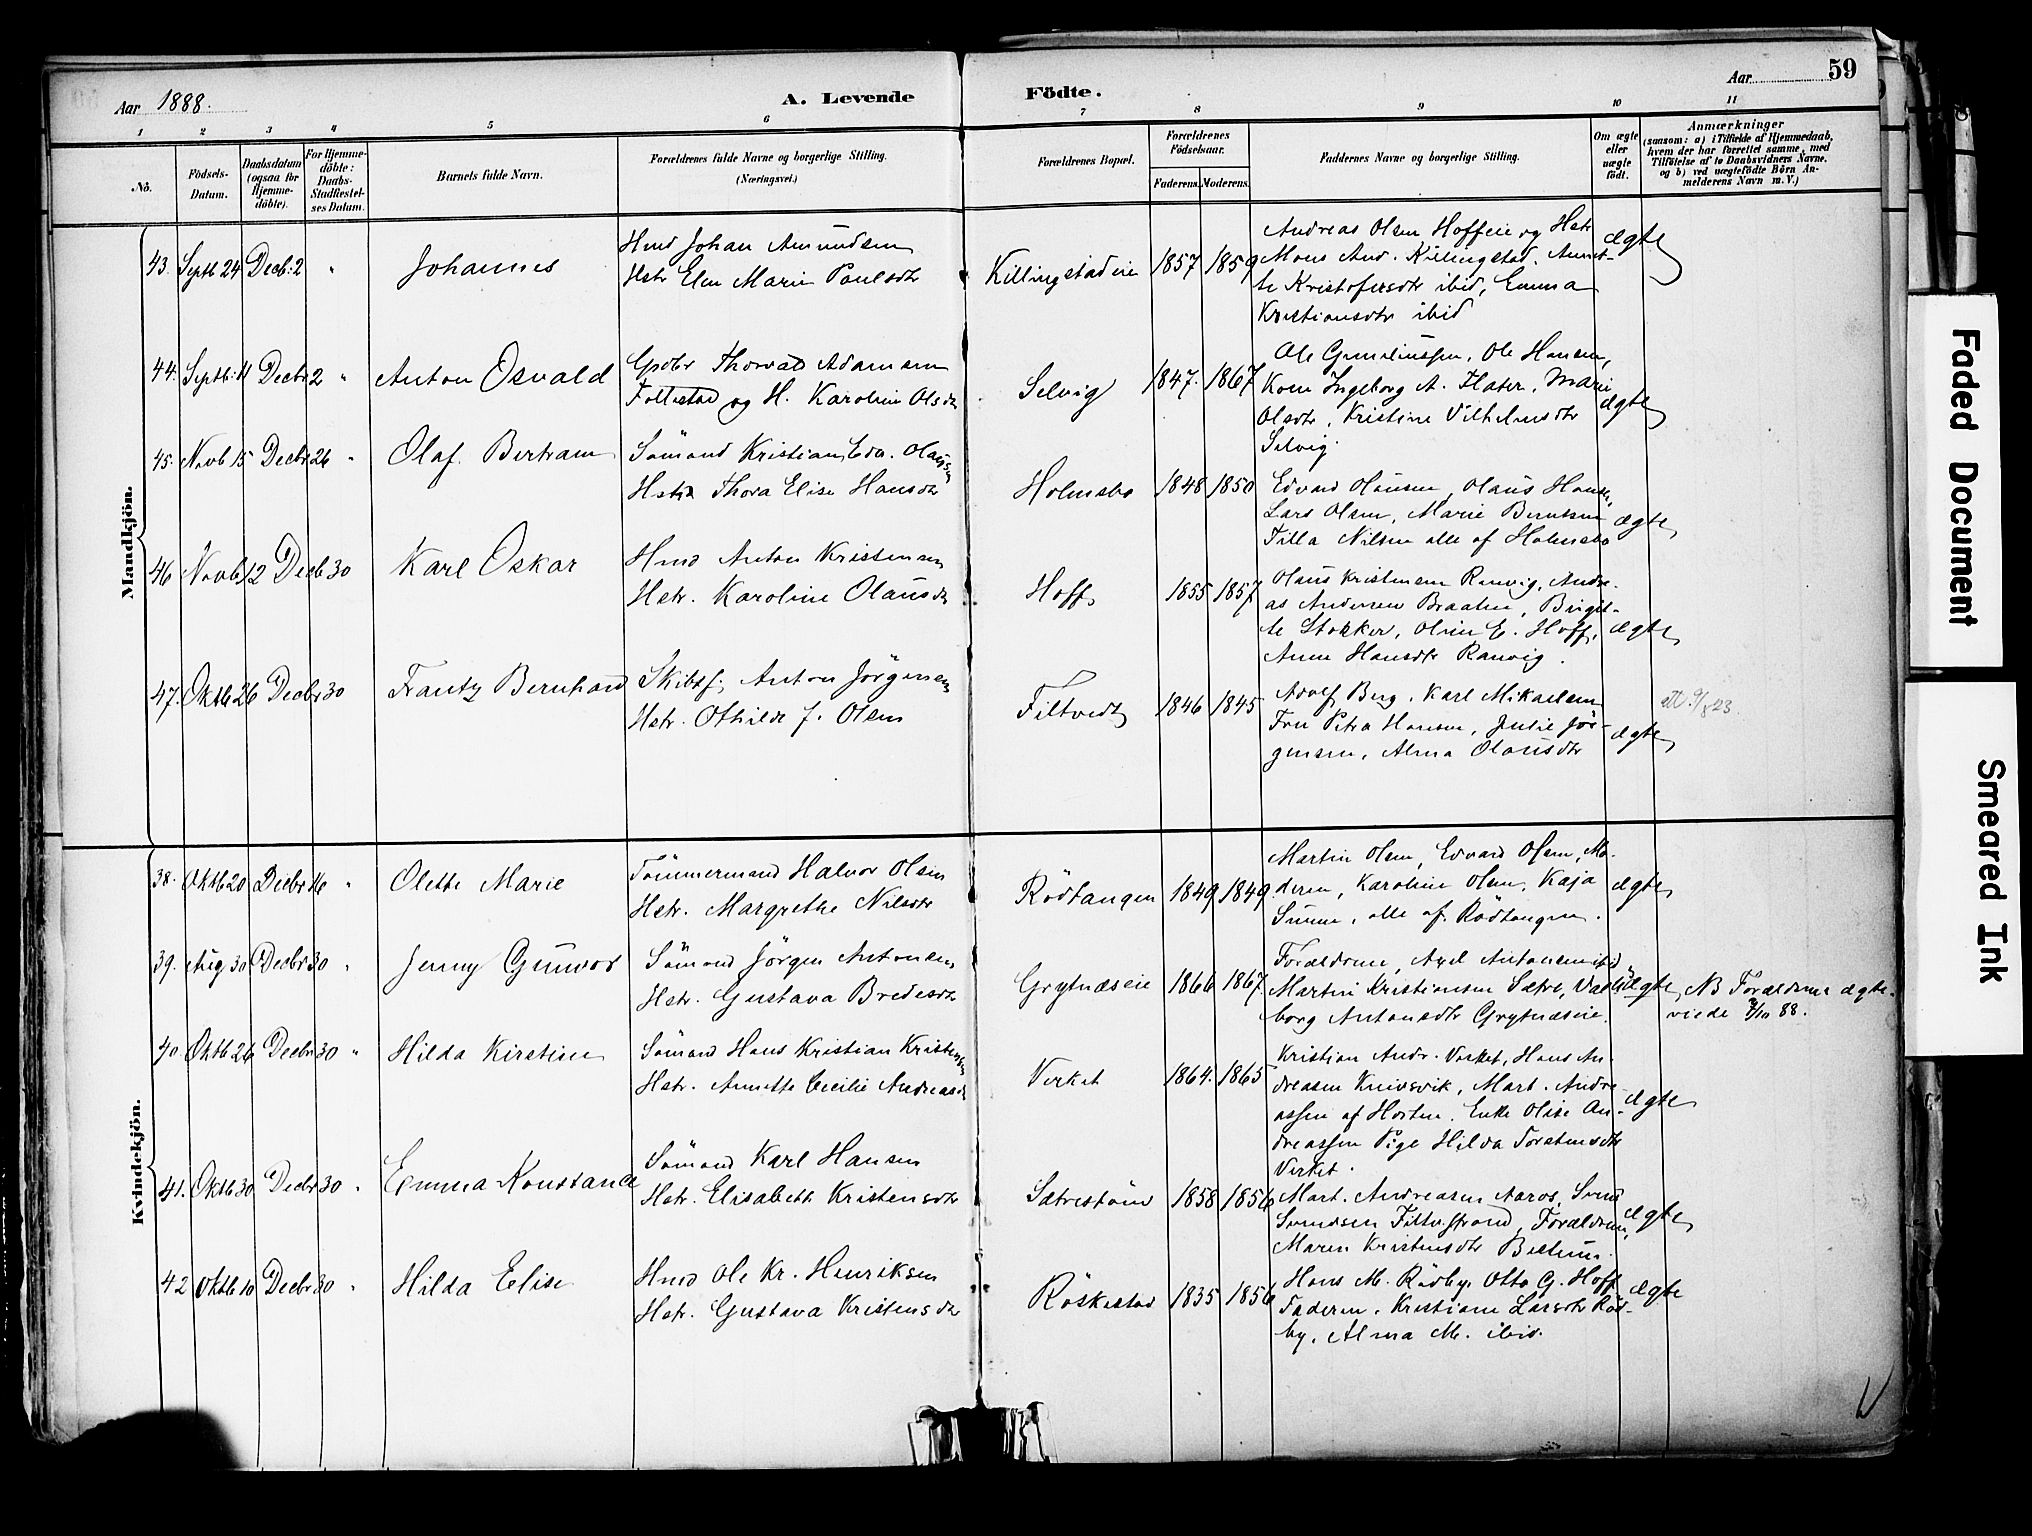 59
Aar 1888.
A. Levende Födte.
Aar
1 2 3 4 5 6 7 8 9 10 11
No.
Födsels-Datum.
Daabsdatum (ogsaa for Hjemme-döbte).
For Hjemme-döbte: Daabs-Stadfæstel-ses Datum.
Barnets fulde Navn.
Forældrenes fulde Navne og borgerlige Stilling.
(Næringsvei.)
Forældrenes Bopæl.
Forældrenes Födselsaar.
Faderens. Moderens.
Faddernes Navne og borgerlige Stilling.
Om ægte eller uægte födt.
Anmærkninger
(saasom: a) i Tilfælde af Hjemmedaab,
hvem der har forrettet samme, med
Tilföielse af to Daabsvidners Navne,
og b) ved uægtefödte Börn An-
melderens Navn m. V.)
Mandkjön.
43. Septb 24 Decb: 2 " Johannes
Hmd Johan Amundsen
Hstr Elen Marie Paulsdtr
Killingstadeie 1857 1859
Andreas Olsen Hoffeie og Hstr
Mons And. Killingstad. Annet-
te Kristofersdtr ibid, Emma
Kristiansdtr ibid
ægte
44. Septb: 11 Decbr 2 " Anton Osvald
Gpdbr Thorvald Adamsen
Follestad og H. Karoline Olsdtr
Selvig 1847. 1867
Ole Gunderiussen, Ole Hansen,
Kone Ingeborg A. Flater, Marie
Olsdtr, Kristine Vilhelmsdtr
Selvig.
ægte
45. Novb 15 Decbr 26 " Olaf Bertram
Sömand Kristian Edv. Olaussen
Hstr Thora Elise Hansdtr
Holmsbo 1848 1850
Edvard Olausen, Olaus Hansen,
Lars Olsen, Marie Berntsen
Tilla Nilsen alle af Holmsbo
ægte
46 Novb 12 Decb 30 Karl Oskar
Hmd Anton Kristensen
Hstr. Karoline Olausdtr
Hoff 1855 1857
Olaus Kristensen Ranvig, Andre-
as Andersen Braaten, Birgit-
te Stokker, Oline E. Hoff,
Anne Hansdtr Ranvig.
ægte
47. Oktb 26 Decbr 30 Frantz Bernhard
Skibsf. Anton Jörgensen
Hstr. Othilde J. Olsen
Filtvedt 1846 1845
Adolf Berg, Karl Mikaelsen
Fru Petra Hansen, Julie Jör-
gensen, Alma Olausdtr
ægte
Kvindekjön.
38. Oktb 20 Decbr 16 " Olette Marie
Tömmermand Halvor Olsen
Hstr. Margrethe Nilsdtr
Rödtangen 1849 1849
Martin Olsen, Edvard Olsen, Mo-
deren, Karoline Olsen, Kaja
Simensen, alle af Rödtangen.
ægte
39. Aug 30 Decbr 30 " Jenny Gunvor
Sömand Jörgen Antonsen
Hstr. Gustava Bredesdtr
Grytnæseie 1866 1867
Forældrene, Axel Antonsen ibid
Martin Kristiansen Sætre, Val-
borg Antonsdtr Grytnæseie.
ægte
NB Forældrene ægte-
viede 3/10 88.
40. Oktb 26 Decbr 30 " Hilda Kirstine
Sömand Hans Kristian Kristensen
Hstr. Annette Cecilie Andreasdtr
Virket 1864. 1865
Kristian Andr. Virket, Hans An-
dreasen Knivsvik, Mart. Andre-
assen af Horten. Enke Olise An-
dreassen Pige Hilda Torstensdtr
Virket.
ægte
41. Oktb 30 Decbr 30 " Emma Konstance
Sömand Karl Hansen
Hstr. Elisabeth Kristensdtr
Sætreström 1858 1856
Mart. Andreasen Aaros, Svend
Svendsen Filtv.strand, Forældrene,
Maren Kristensdtr
ægte
42 Oktb 10 Decbr 30 " Hilda Elise
Hmd Ole Kr. Henriksen
Hstr. Gustava Kristensdtr
Röskestad 1835 1856
Hans M. Rödby, Otto G. Hoff
Faderen, Kristiane Larsdtr Röd-
by, Alma M. ibid.
ægte
Faded Document
Smeared Ink